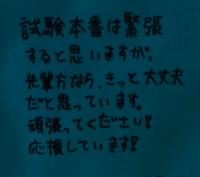 試験本番は緊張
すると思いますが、
先輩方なら、きっと大丈夫
だと思っています。
頑張ってください!
応援しています!